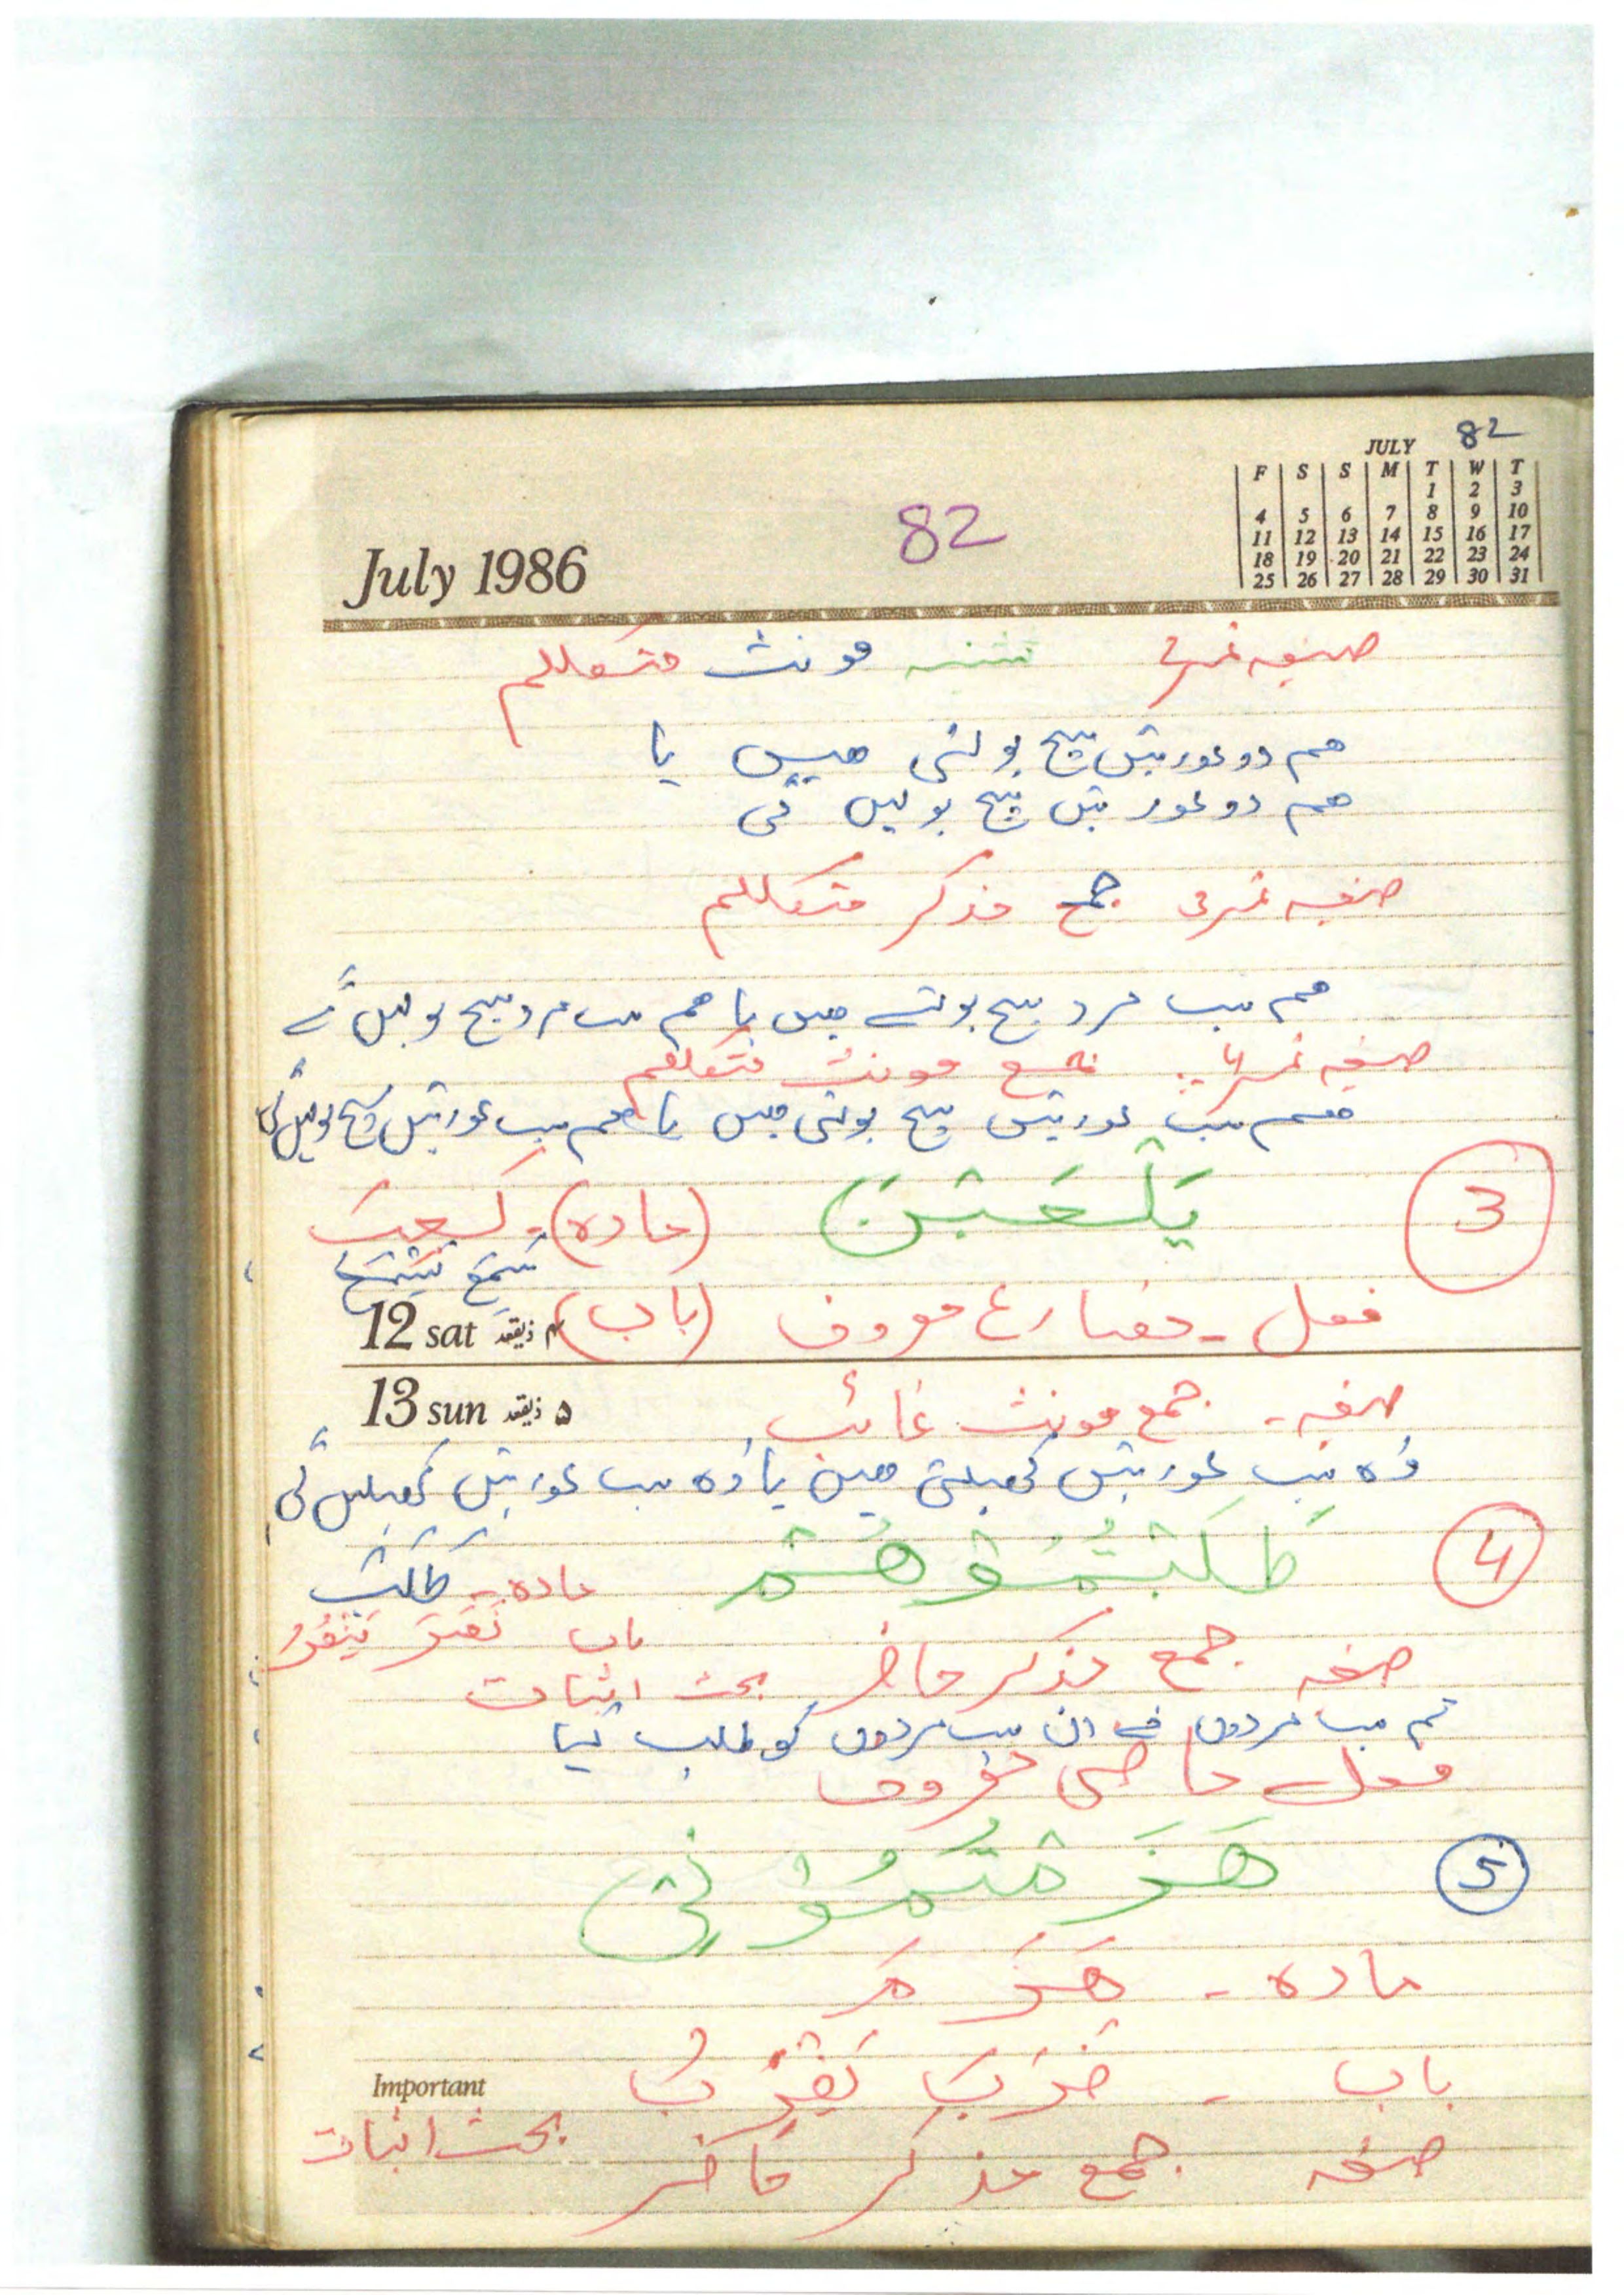 82
JULY
F S S M T W T
1 2 3
4 5 6 7 8 9 10
11 12 13 14 15 16 17
18 19 20 21 22 23 24
25 26 27 28 29 30 31
82
July 1986
صیغہ نمبر ۲ تثنیہ مونث متکلم
ھم دو عورتیں سچ بولتی ھیں یا
ھم دو عورتیں سچ بولیں گی
صیغہ نمبر ۳ جمع مذکر متکلم
ھم سب مرد سچ بولتے ھیں یا ھم سب مرد سچ بولیں گے
صیغہ نمبر ۴ جمع مونث متکلم
ھم سب عورتیں سچ بولتی ھیں یا ھم سب عورتیں سچ بولیں گی
3 یَلْعَبْنَ (مادہ) - لَعِبَ
سَمِعَ یَسْمَعُ
فعل - مضارع معروف (باب)
12 sat ۴ ذیقعد
13 sun ۵ ذیقعد
صیغہ - جمع مونث غائب
وُہ سب عورتیں کھیلتی ھیں یا وُہ سب عورتیں کھیلیں گی
4 طَلَبْتُمُوْھُمْ مادہ - طَلَبَ
باب نَصَرَ یَنْصُرُ
صیغہ جمع مذکر حاضر بحث اثبات
تم سب مردوں نے ان سب مردوں کو طلب کیا
فعل ماضی معروف
5 ھَزَمْتُمُوْنِیْ
مادہ - ھَزَمَ
باب - ضَرَبَ یَضْرِبُ
Important
صیغہ جمع مذکر حاضر بحث اثبات